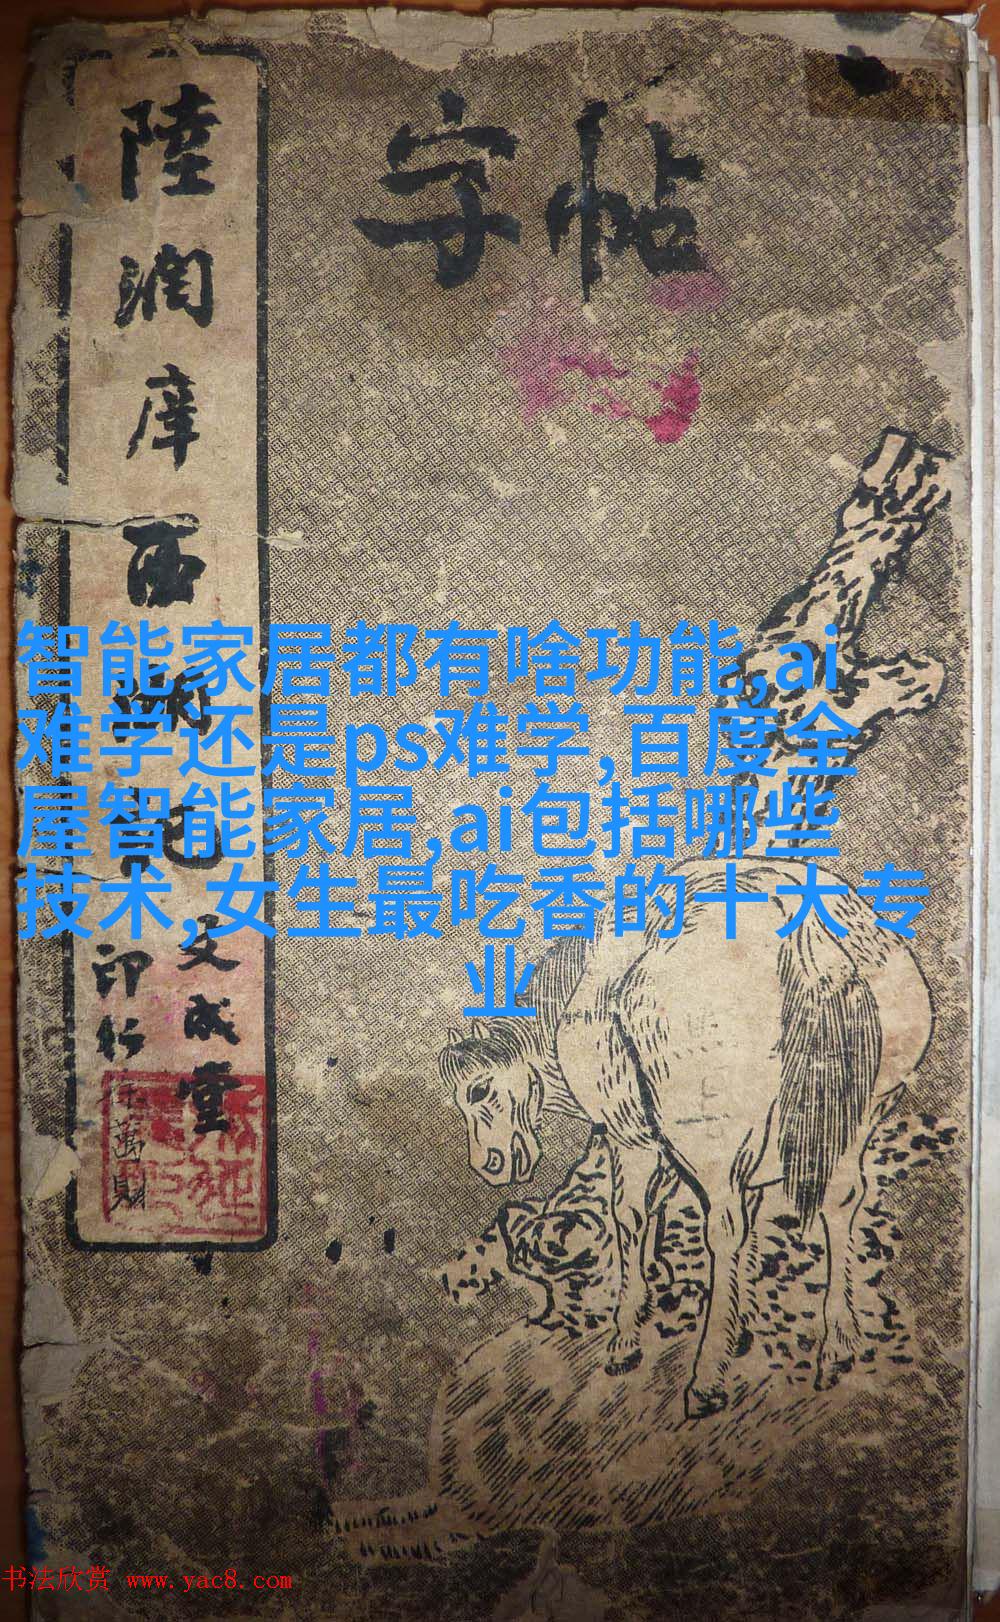 字帖
陸潤庠西湖記
文成堂
印行
徐萬財
智能家居都有啥功能,ai
难学还是ps难学,百度全
屋智能家居,ai包括哪些
技术,女生最吃香的十大专
业
书法欣赏 www.yac8.com